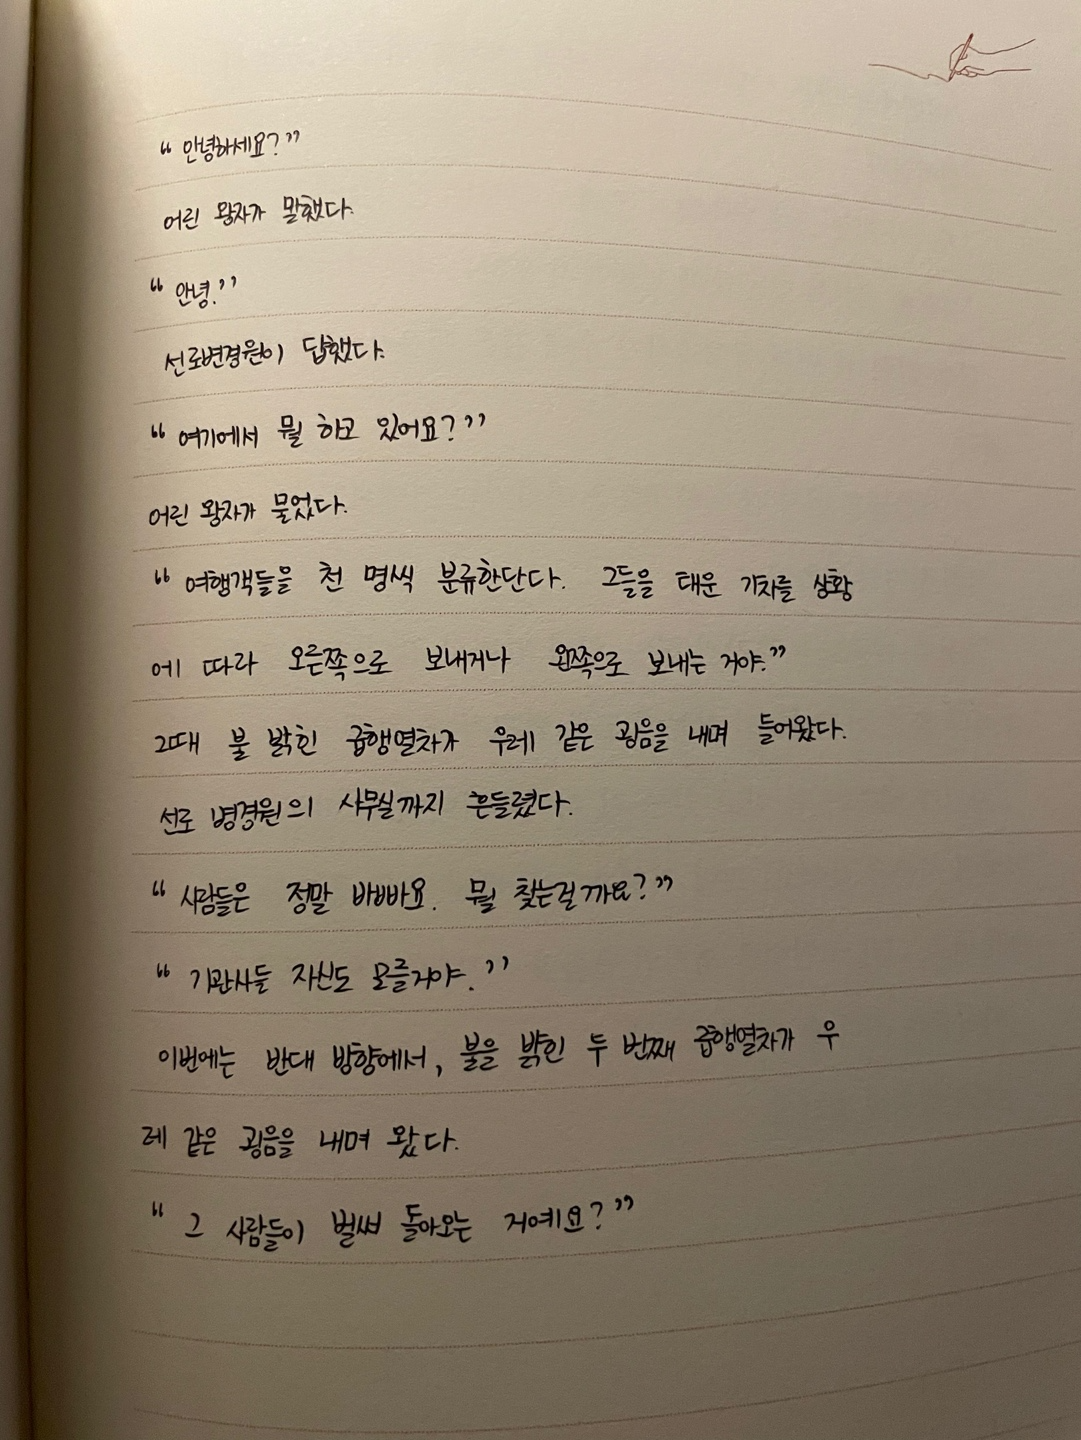 “안녕하세요?”
어린 왕자가 말했다.
“안녕.”
선로변경원이 답했다.
“여기에서 뭘 하고 있어요?”
어린 왕자가 물었다.
“여행객들을 천 명씩 분류한단다. 그들을 태운 기차를 상황
에 따라 오른쪽으로 보내거나 왼쪽으로 보내는 거야.”
그때 불 밝힌 급행열차가 우레 같은 굉음을 내며 들어왔다.
선로 병경원의 사무실까지 흔들렸다.
“사람들은 정말 바빠요. 뭘 찾는걸까요?”
“기관사들 자신도 모를거야.”
이번에는 반대 방향에서, 불을 밝힌 두 번째 급행열차가 우
레 같은 굉음을 내며 왔다.
“그 사람들이 벌써 돌아오는 거예요?”